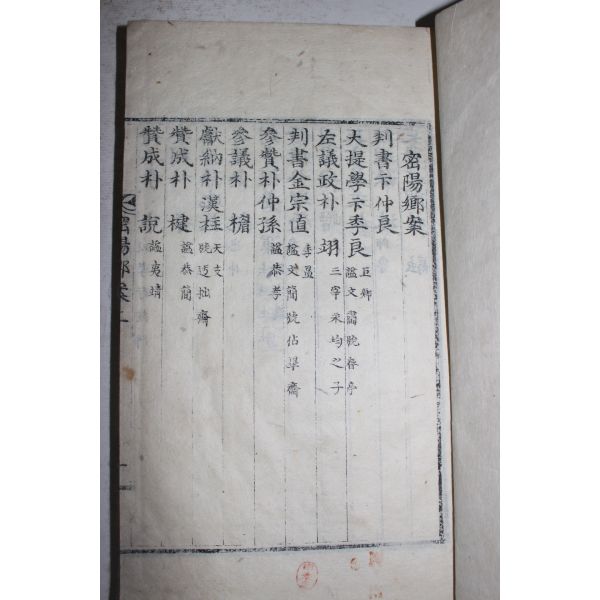 密陽鄉案
判書卞仲良
大提學卞季良 巨卿 諡文肅號春亭
左議政朴翊 三宰朱均之子
判書金宗直 季昷 諡文簡號佔畢齋
參贊朴仲孫 諡恭孝
參議朴襜
獻納朴漢柱 天支 號迂拙齋
贊成朴楗 諡恭簡
贊成朴說 諡夷靖
密陽鄉案